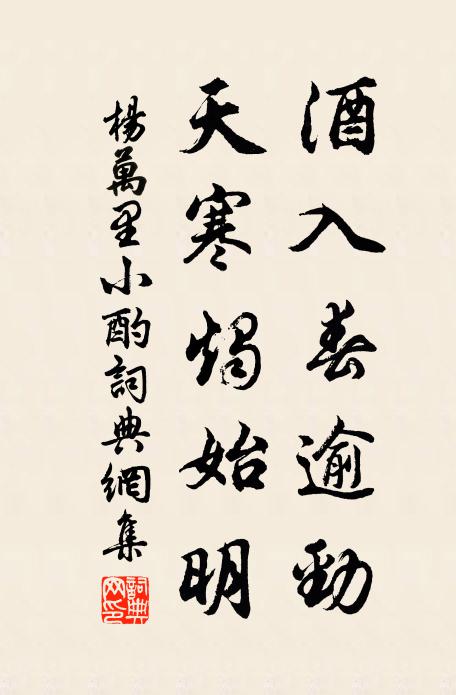 酒入春逾勁
天寒燭始明
楊萬里小酌詞典網集
詞典网印